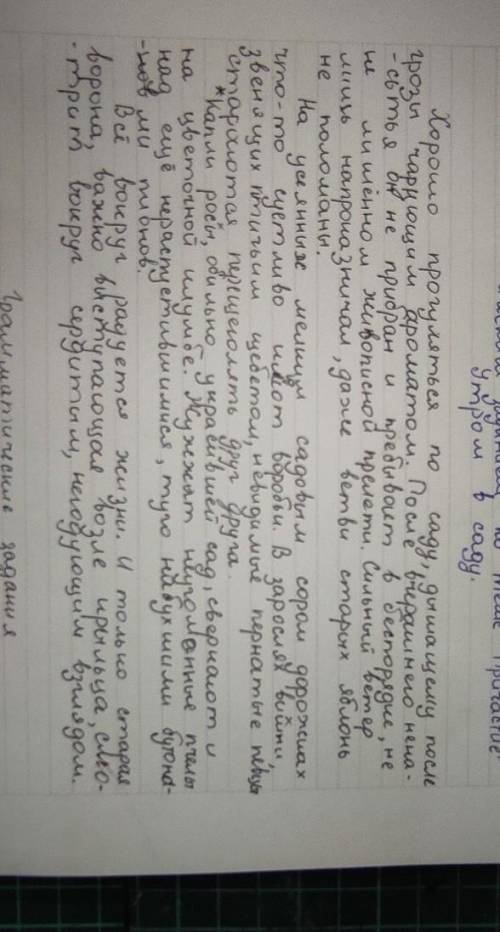 по теме "Причастие
Утром в саду.
Хорошо прогуляться по саду, дышащему после
грозы чарующим ароматом. После вчерашнего нена-
-стья он не прибран и пребывает в беспорядке, не
не лишённом живописной прелести. Сильный ветер
лишь напроказничал, даже ветви старых яблонь
не поломаны.
На усеянных мелким садовым сором дорожках
что-то суетливо ищут воробьи. В зарослях вишни,
звенящих птичьим щебетом, невидимые пернатые певцы
стараются перещеголять друг друга.
*Капли росы, обильно украсившей сад, сверкают и
на цветочной клумбе. Жужжат неугомонные пчелы
над ещё нераспустившимися, туго набухшими бутона-
-ми пионов.
Всё вокруг радуется жизни. И только старая
ворона, важно выступающая возле крыльца, смо-
-трит вокруг сердитым, негодующим взглядом.
Грамматические задания